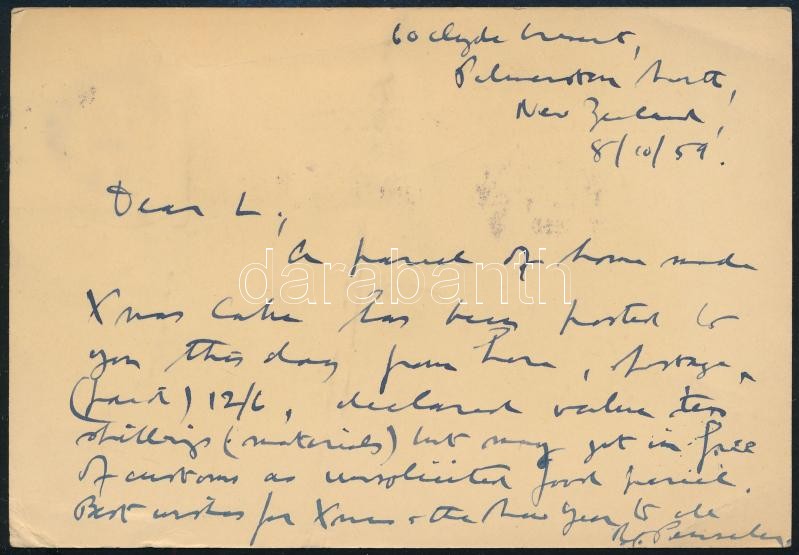 60 Clyde Crescent,
Palmerston North,
New Zealand,
8/10/59.
Dear L.,
A parcel of home made
darabanth
Xmas Cake has been posted to
you this day from here, postage,
(paid) 12/6, declared value ten
shillings (materials) but may get in free
of customs as unsolicited food parcel.
Best wishes for Xmas & the New Year to all